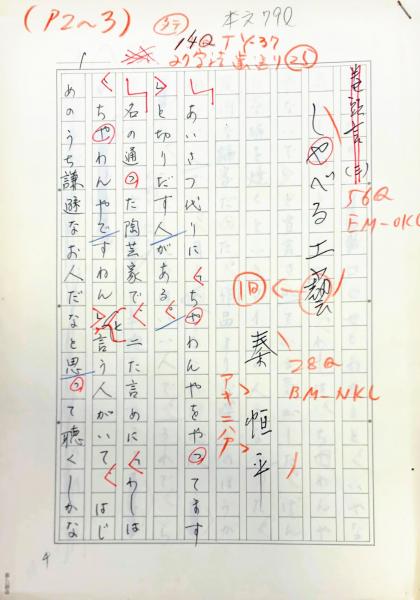 (P2〜3)
本文79Q
14Q TY-37
27字詰
巻頭言
56Q
EM-OKL
しゃべる工藝
1回
秦恒平
28Q
BM-NKL
アキニハア
あいさつ代りに「ちゃわんやをやってます
」と切りだす人がある。
名の通った陶芸家で、二た言めに「わしは
ちゃわんやですわん」と言う人がいて、はじ
めのうち謙遜なお人だなと思って聴くしかな
4